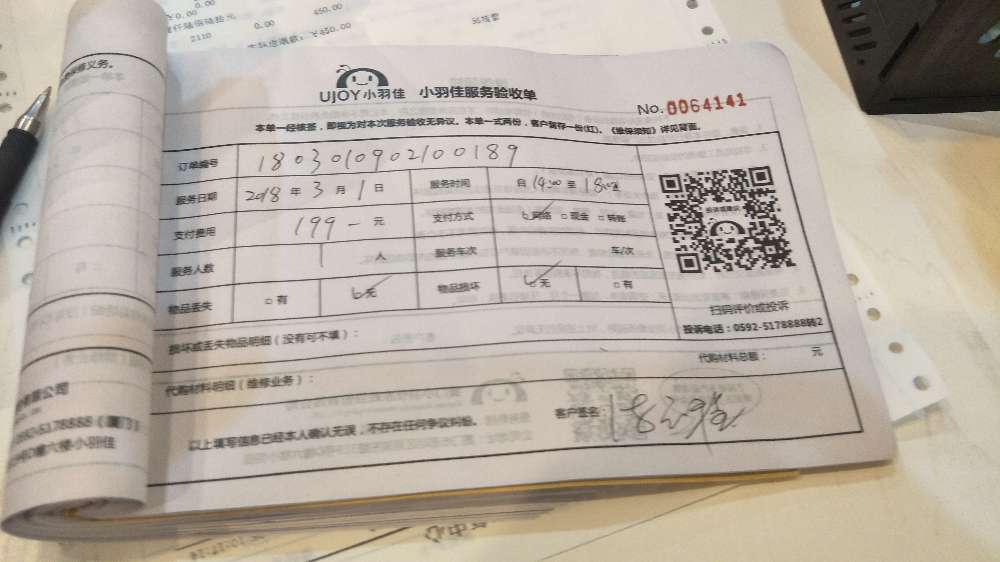 ¥0.00
0.00
450.00
2110
0.00
UJOY小羽佳 小羽佳服务验收单
No. 0064141
本单一经核签，即视为对本次服务验收无异议。本单一式两份，客户留存一份(红)。《维保须知》详见背面。
订单编号 1803010902100189
服务日期 2018 年 3 月 1 日 服务时间 自 14:00 至 18:00
支付费用 199 - 元 支付方式 网络 □ 现金 □ 转账
服务人数 1 人 服务车次 车/次
物品丢失 □ 有 无 物品损坏 无 □ 有
投诉或建议
扫码评价或投诉
投诉电话：0592-5178888转2
损坏或丢失物品明细（没有可不填）：
代购材料明细（维修业务）：
代购材料总额： 元
以上填写信息已经本人确认无误，不存在任何争议纠纷。
客户签名：
修义务。
有限公司
0592-5178888（厦门）
六楼小羽佳